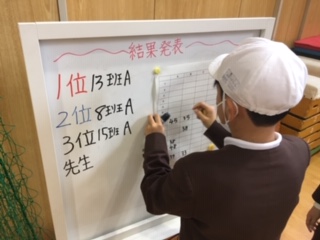 結果発表
1位 13班A
2位 8班A
3位 15班A
先生